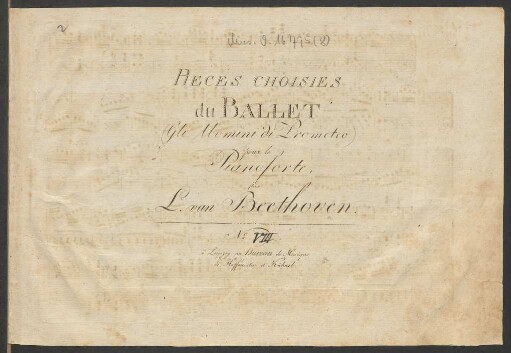 2
PIECES CHOISIES
du BALLET
(Gli Uomini di Prometeo)
pour le
Pianoforte
par
L. van Beethoven.
No. VIII
à Leipzig au Bureau de Musique
de Hoffmeister et Kühnel.